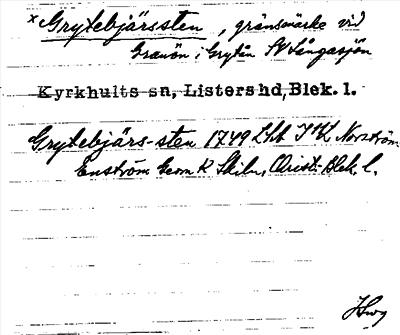 x Grytebjärssten, gränsmärke vid
Granön i Grytån SV Långasjön
Kyrkhults sn, Listers hd, Blek. l.
Grytebjärs-sten 1749 Lht J KL Norström
Enström Geom K Skibr, Christi. Blek. l.